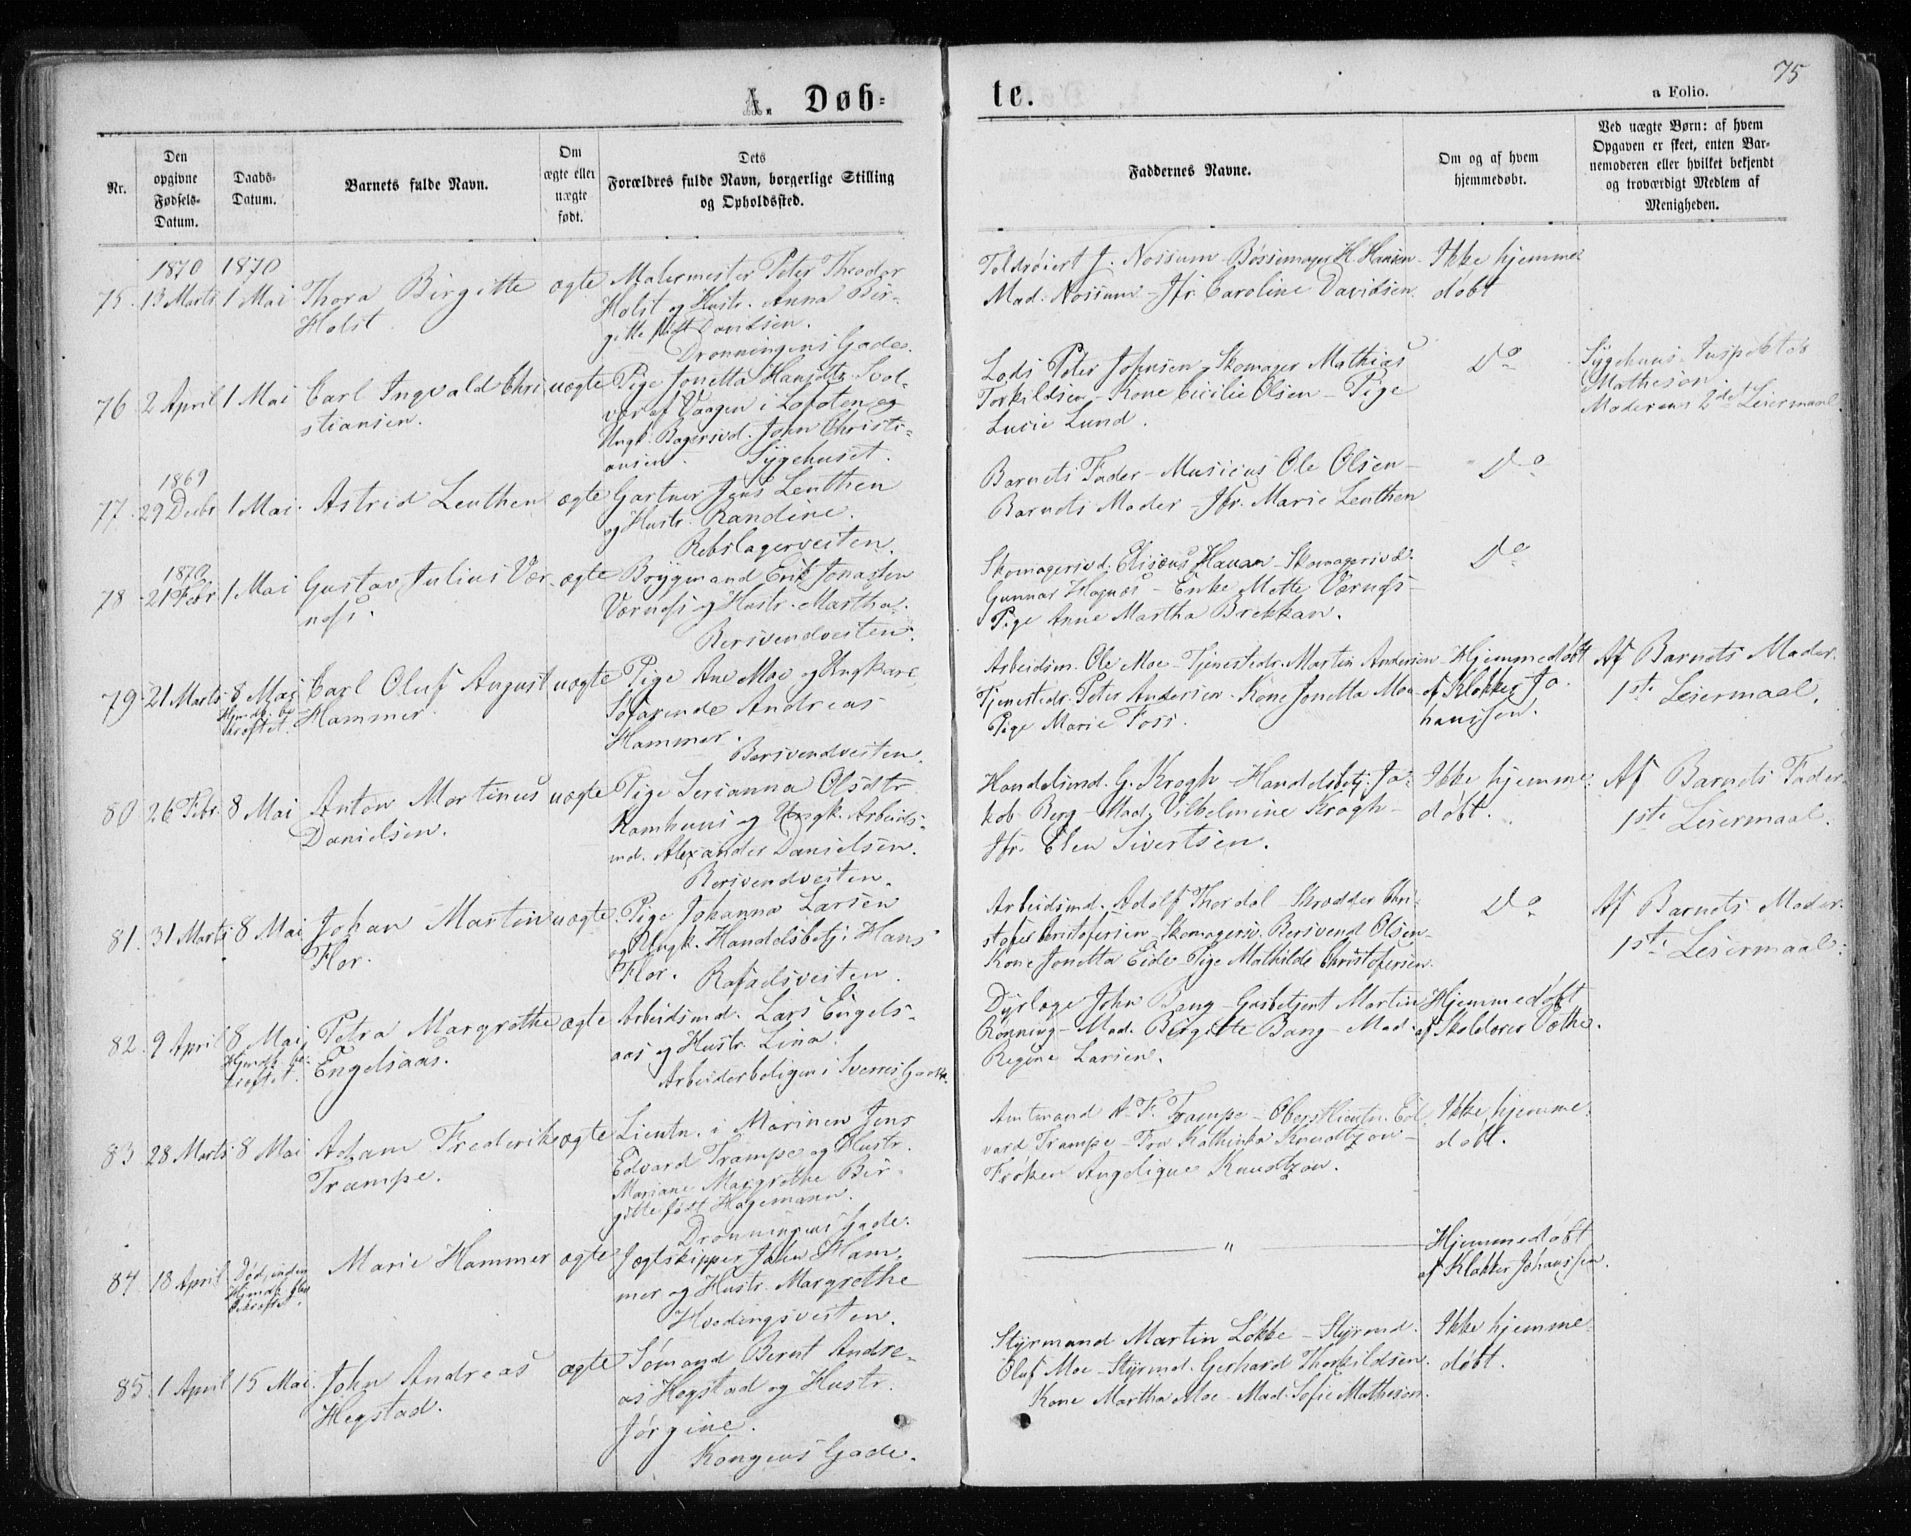 75
A. Døb=
te.
a Folio.
Nr.
Den
opgivne
Fødsels=
Datum.
Daabs=
Datum.
Barnets fulde Navn.
Om
ægte eller
uægte
født.
Dets
Forældres fulde Navn, borgerlige Stilling
og Opholdssted.
Faddernes Navne.
Om og af hvem
hjemmedøbt.
Ved uægte Børn: af hvem
Opgaven er skeet, enten Bar=
nemoderen eller hvilket bekjendt
og troværdigt Medlem af
Menigheden.
1870 1870
75. 13 Marts 1 Mai Thora Birgitte
Holst.
ægte
Malermester Peter Theodor
Holst og Hustr. Anna Bir-
gitte født Davidsen.
Dronningens Gade.
J. Nossum - Bøssemager H. Hansen -
Mad. Nossum - Jfr. Caroline Davidsen.
Ikke hjemme
døbt
76 2 April 1 Mai Carl Ingvald Chri
stiansen.
uægte
Pige Jonetta Hansdtr. Svol-
vær af Vaagen i Lofoten og
Ungk. Bagersvd. John Christi-
ansen. Sygehuset.
Lods Peter Johnsen - Skomager Mathias
Torkildsen - Kone Cicilie Olsen - Pige
Lucie Lund.
Do
Sygehuus-Inspektør
Matheson.
Moderens 2det Leiermaal.
1869
77. 29 Decbr 1 Mai. Astrid Leuthen
ægte
Gartner Jens Leuthen
og Hustr. Randine.
Rebslagerveiten.
Barnets Fader - Musicus Ole Olsen -
Barnets Moder - Jfr. Marie Leuthen
Do
1870
78 21 Febr 1 Mai Gustav Julius Vær
næs.
ægte
Brygmand Erik Jonassen
Værnæs og Hustr. Martha.
Bersvendveiten.
Skomagersvd. Elisæus Hauan - Skomagersvd.
Gunnar Hognæs - Enke Mette Værnæs -
Pige Anne Martha Brekkan.
Do
79. 21 Marts 8 Mai
Hjmdb. be-
kræftet.
Carl Oluf August
Hammer.
uægte
Pige Ane Moe og Ungkarl
Søfarende Andreas
Hammer.
Bersvendveiten.
Arbeidsm. Ole Moe - Tjenestedr. Martin Andersen -
Tjenestedr. Peter Andersen - Kone Jonetta Moe
Pige Marie Foss.
Hjemmedøbt
af Klokker Jo-
hanssen.
Af Barnets Moder.
1ste Leiermaal.
80. 26 Febr. 8 Mai Anton Martinus
Danielsen.
uægte
Pige Serianna Olsdtr
Kamhuus og Ungk. Arbeids-
md. Alexander Danielsen.
Bersvendveiten.
Handelsmd. G. Krogh - Handelsbetj. Ja-
kob Berg - Mad. Vilhelmine Krogh -
Jfr. Elen Sivertsen.
Ikke hjemme-
døbt.
Af Barnets Fader.
1ste Leiermaal.
81. 31 Marts 8 Mai Johan Martin
Flor.
uægte.
Pige Johanna Larsen
og Ungk. Handelsbetj. Hans
Flor. Rafaelsveiten.
Arbeidsmd. Adolf Thordal - Skrædder Chri-
stofer Christofersen - Skomagersv. Bersvend Olsen -
Kone Jonetta Eide Pige Mathilde Christofersen.
Do
Af Barnets Moder.
1ste Leiermaal.
82. 9 April 8 Mai
Hjmdb. be-
kræftet.
Petra Margrethe
Engelsaas.
ægte
Arbeidsmd. Lars Engels-
aas og Hustr. Lina.
Arbeiderboligen i Sverresgaden.
Dyrlæge John Bang - Gasbetjent Martin
Rønning - Mad. Birgitte Bang - Mad.
Regine Larsen.
Hjemmedøbt
af Skolelærer Væthe.
83 28 Marts 8 Mai Adam Frederik
Trampe.
ægte
Lieutn. i Marinen Jens
Edvard Trampe og Hustr.
Mariane Margrethe Bir-
gitte født Hagemann.
Dronningens Gade.
Amtmand A. F. Trampe - Oberstlieutn. Ed
vard Trampe - Fru Kathinka Knudtzon -
Frøken Angelique Knudtzon.
Ikke hjemme-
døbt.
84 18 April
Død inden
Hjmdb. blev
bekræftet.
Marie Hammer
ægte
Jægtskipper John Ham-
mer og Hustr. Margrethe
Hvedingsveiten.
"
Hjemmedøbt
af Klokker Johanssen.
85. 1 April 15 Mai. John Andreas
Hegstad.
ægte
Sømand Bernt Andre-
as Hegstad og Hustr.
Jørgine.
Kongens Gade.
Styrmand Martin Løkke - Styrmd.
Oluf Moe - Styrmd. Gerhard Thorkildsen.
Kone Martha Moe - Mad. Sofie Matheson.
Ikke hjemme-
døbt.